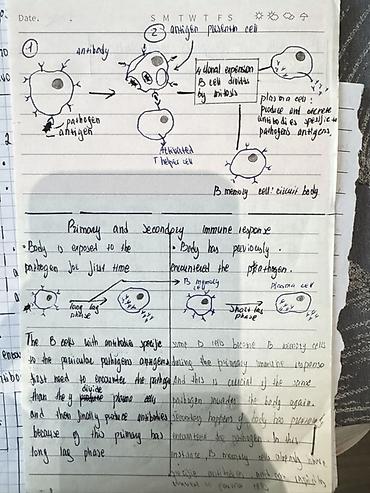 Date.
S M T W T F S
1
2 antigen presentin cell
antibody
4 clonal expension
B cell divides
by mitosis
pathogen
antigen
Activated
T helper cell
plasma cell:
produce and secrete
antibodies specific to
pathogens antigens.
B memory cell: circuit body
Primary and Secondary immune response
• Body is exposed to the
pathogen for first time
• Body has previously
encountered the pathogen.
long lag
phase
B memory
cell
short lag
phase
Plasma cell
The B cells with antibodies specific
to the particular pathogens antigens
first need to encounter the pathogen
than they divide plasma cells
and then finally produce antibodies
because of this primary has
long lag phase
some B cells become B memory cells
during the primary immune response
and this is crucial if the same
pathogen invades the body again.
Secondary happens if body has previously
encountered the pathogen. In this
instance, B memory cells already have
specific antibodies, and